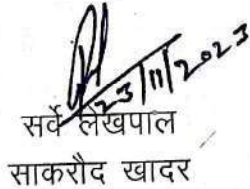 23/11/2023
सर्वे लेखपाल
साकरौद खादर